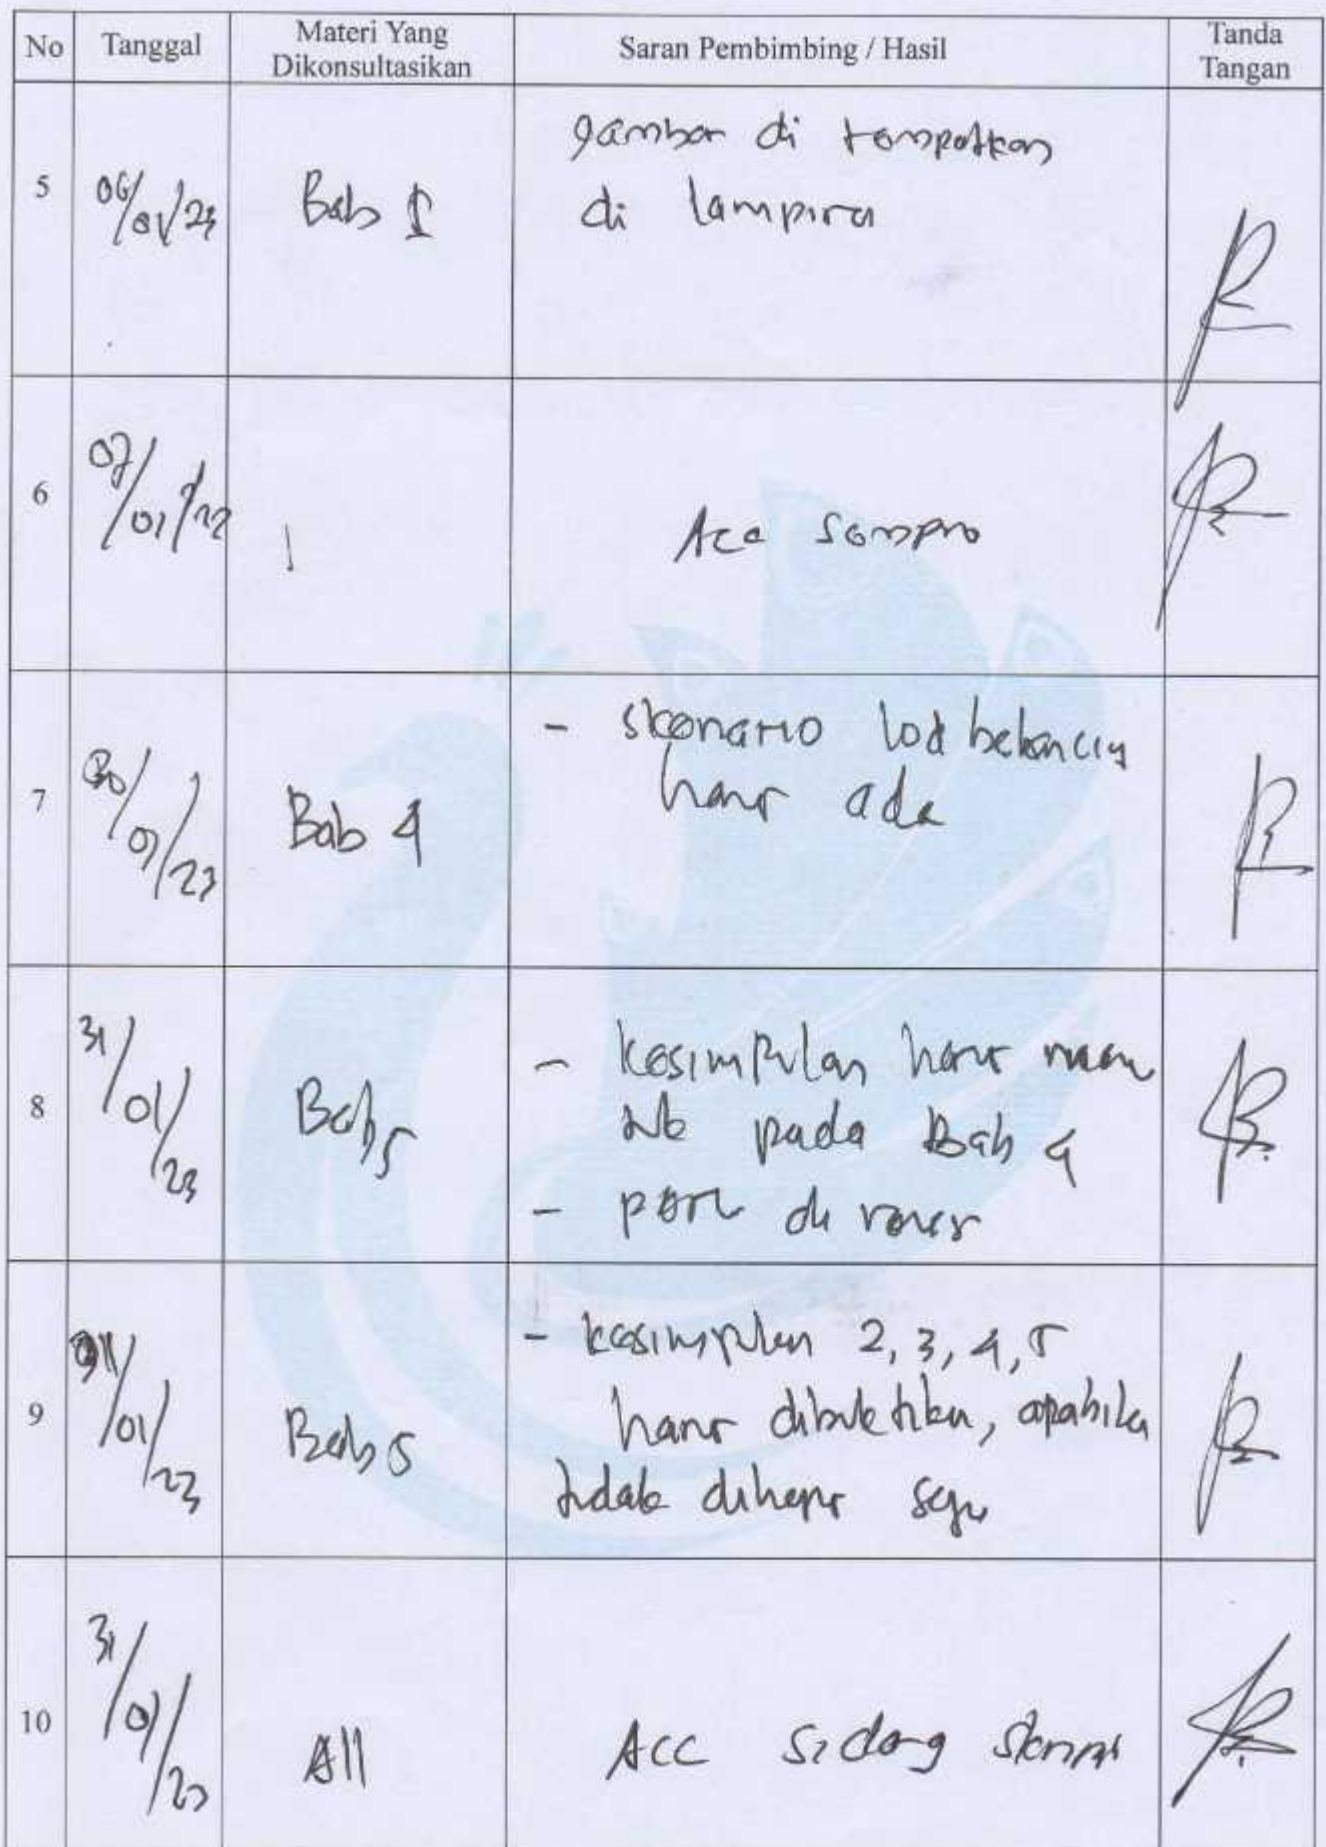 No Tanggal Materi Yang Dikonsultasikan Saran Pembimbing / Hasil Tanda Tangan
5 06/01/23 Bab 1 gambar di tempatkan
di lampiran
6 07/01/22 Acc sempro
7 30/01/23 Bab 4 - skenario lod belancing
harus ada
8 31/01/23 Bab 5 - kesimpulan harus
pada Bab 4
- perlu di revisi
9 31/01/23 Bab 5 - kesimpulan 2, 3, 4, 5
harus dibuktikan, apabila
tidak dihapus saja
10 31/01/23 All Acc sidang skripsi